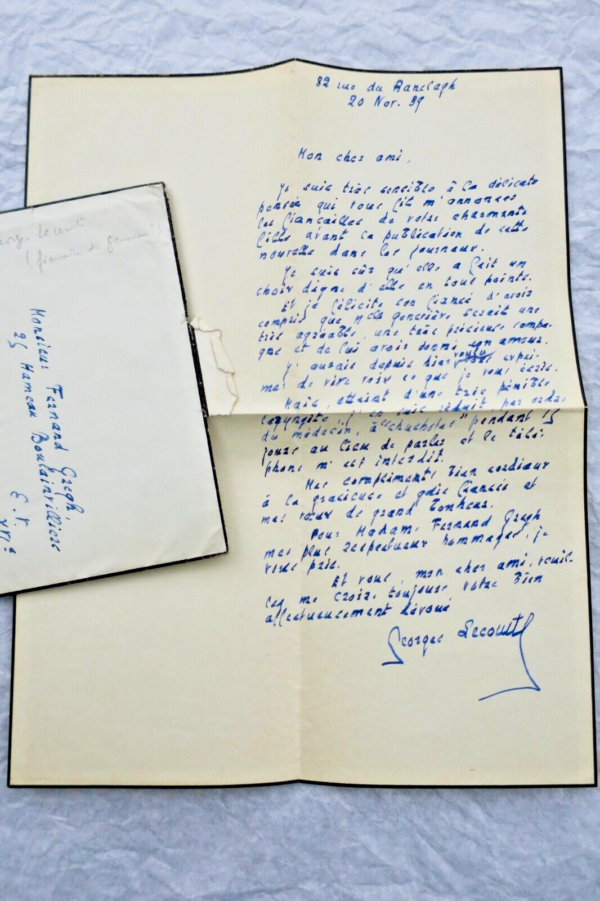 82 rue du Ranelagh
20 Nov. 39
Mon cher ami,
Je suis très sensible à la délicate
pensée qui vous fit m'annoncer
les fiançailles de votre charmante
fille avant la publication de cette
nouvelle dans les journaux.
Je suis sûr qu'elle a fait un
choix digne d'elle en tous points.
Et je félicite son fiancé d'avoir
compris que Melle Geneviève serait une
très agréable, une très précieuse compa-
gne et de lui avoir donné son amour.
J'aurais depuis hier voulu expri-
mer de vive voix ce que je vous écris.
Mais, atteint d'une très pénible
laryngite, j'en suis réduit, par ordre
du médecin, à "chuchoter" pendant 15
jours au lieu de parler et le télé-
phone m'est interdit.
Mes compliments bien cordiaux
à la gracieuse et gaie fiancée et
mes vœux de grand bonheur.
Pour Madame Fernand Gregh
mes plus respectueux hommages, je
vous prie.
Et vous, mon cher ami, veuil-
lez me croire toujours votre bien
affectueusement dévoué
Georges Lecomte
Monsieur Fernand Gregh.
25 Hameau Boulainvilliers
E.V
XVIe